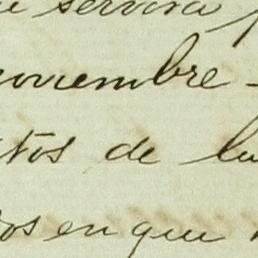 servira
noviembre
tos de lu
os en que